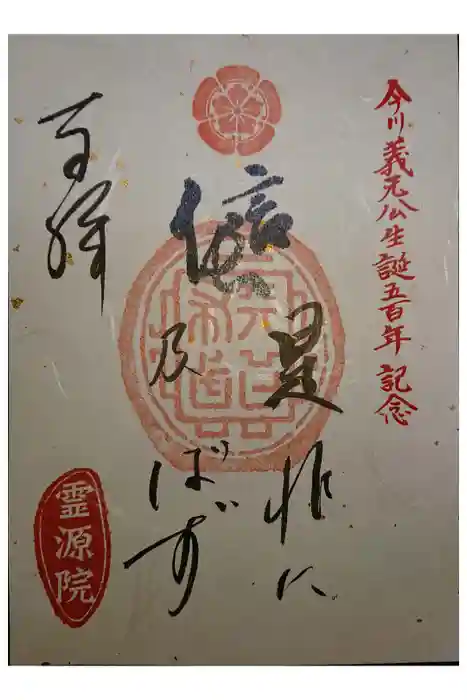 今川義元公生誕五百年記念
是非に
及ばず
奉拝
霊源院